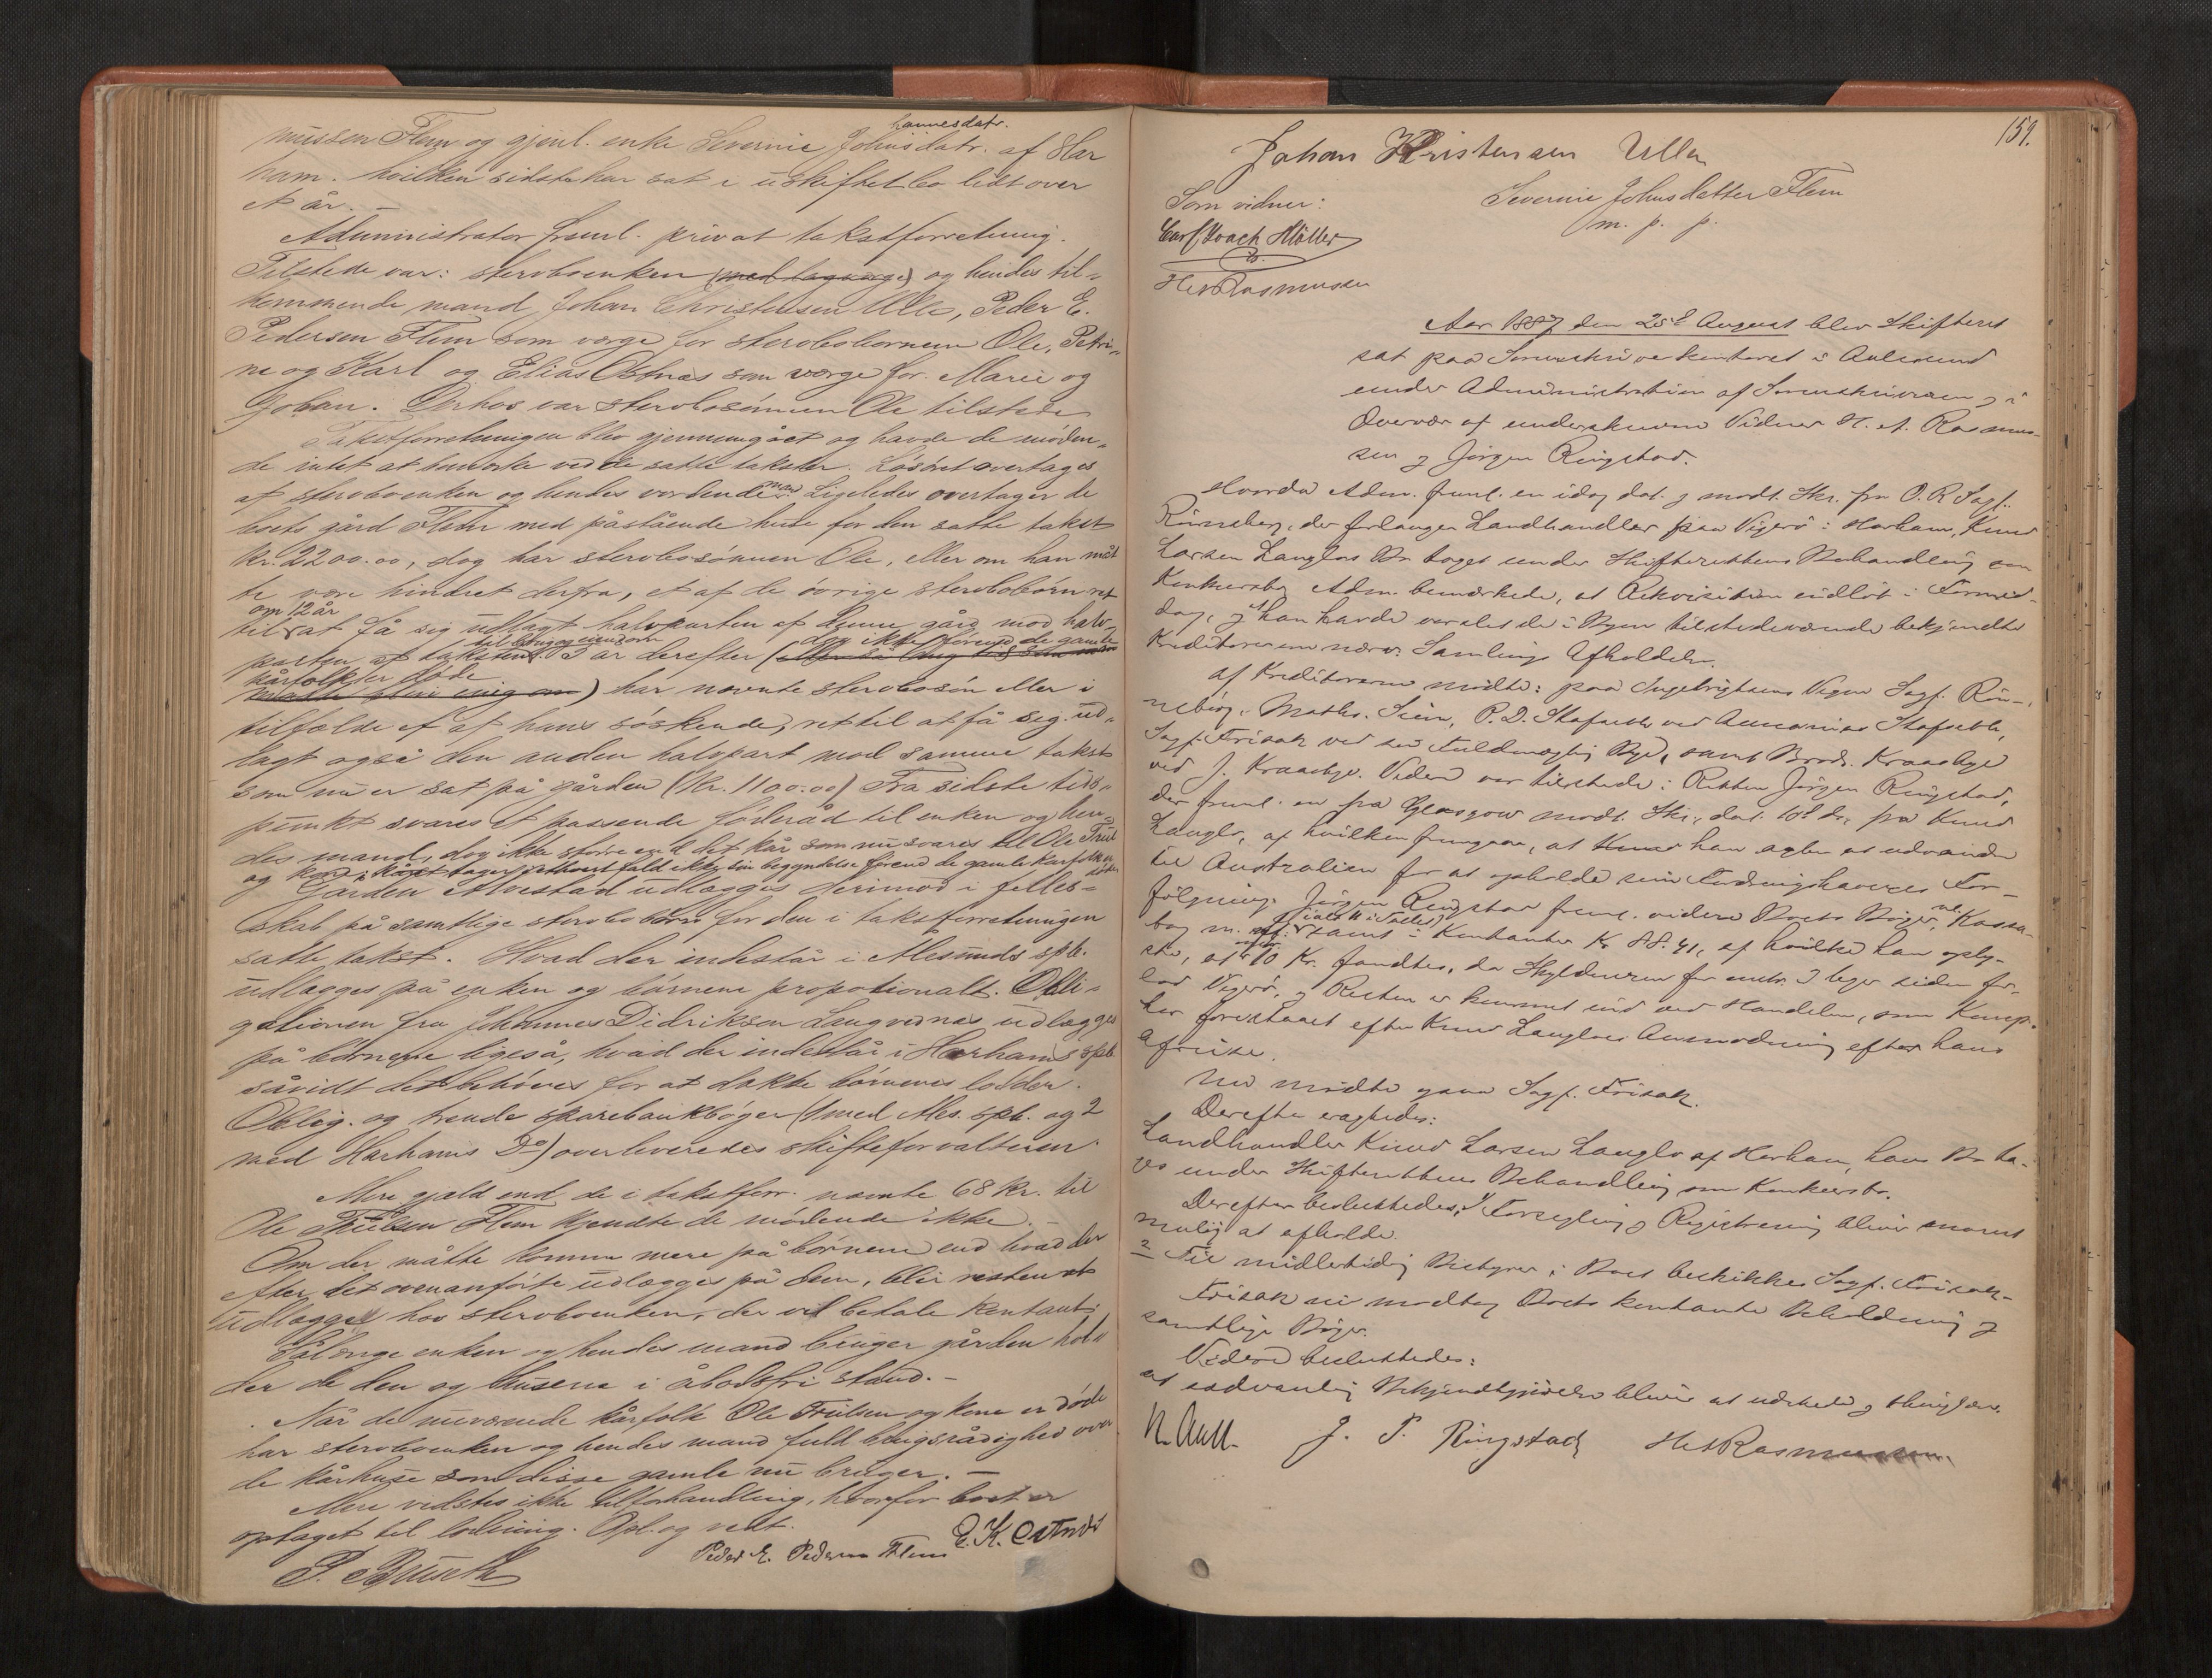 hannesdatr.
mussen Flem og gjenl. enke Severine Johnsdatr. af Har
ham. hvilken sidste har sat i uskiftet bo lidt over
et år. —
Administrator freml. privat takstforretning.
Tilstede var: sterboenken (med lagværge) og hendes til-
kommende mand Johan Christensen Ulla, Peder E.
Pedersen Flem som værge for sterbobørnene Ole, Petri-
ne og Karl og Elias Østnæs som værge for Marie og
Johan. Derhos var sterbosønnen Ole tilstede
Takstforretningen blev gjennemgået og havde de møden-
de intet at bemærke ved de satte takster. Løsøret overtages
af sterboenken og hendes vordende man. Ligeledes overtager de
boets gård Flem med påstående huse for den satte takst
kr. 2200.00, dog har sterbosønnen Ole, eller om han måt
te være hindret derfra, et af de øvrige sterbobørn ret
om 12 år
til at få sig udlagt halvparten af denne gård mod halv-
til brug og eiendom dog ikke førend de gamle
parten af taksten. 3 år derefter (
kårfolk er døde
) har nævnte sterbosøn eller i
tilfælde et af hans søskende, ret til at få sig ud-
lagt også den anden halvpart mod samme takst
som nu er sat på gården (Kr. 1100.00) Fra sidste tids-
punkt svares et passende føderåd til enken og hen-
des mand, dog ikke større end det kår som nu svares til Ole Truls
og tager i ethvert fald ikke sin begyndelse førend de gamle kårfolk er døde
Gården Alvestad udlægges derimod i felles-
skab på samtlige sterbobørn for den i takstforretningen
satte takst. Hvad der indestår i Alesunds spb.
udlægges på enken og børnene propotionalt. Obli-
gationen fra Johannes Didriksen Langvednæs udlægges
på børnene ligeså, hvad der indestår i Harhams spb.
såvidt det behøves for at dække børnenes lodder.
Oblig. og trende sparebankbøger (1 med Ales. spb. og 2
med Harhams Do) overleveredes skifteforvalteren.
Mere gjæld end de i takstforr. nævnte 68 kr. til
Ole Trulsen Flem kjendte de mødende ikke. —
Om der måtte komme mere på børnene end hvad der
efter det ovenanførte udlægges på dem, blir resten at
udlægges hos sterboenken, der vil betale kontant.
Sålænge enken og hendes mand bruger gården hol-
der de den og husene i åbodsfri stand. —
Når de nuværende kårfolk Ole Trulsen og kone er døde
har sterboenken og hendes mand fuld brugsrådighed over
de kårhuse som disse gamle nu bruger. —
Mere vidstes ikke til forhandling, hvorfor boet er
optaget til lodning. Opl. og vedt.
Peder E. Pedersen Flem E. K. Østnæs
P. Buseth
159.
Johan Kristensen Ulla
Severine Johnsdatter Flem
m. p. p.
Som vidner:
Carl Koach Møller
H A Rasmussen
Aar 1887 den 25de August blev Skifteret
sat paa Sorenskriverkontoret i Aalesund
under Administration af Sorenskriveren og i
Overvær af underskrevne Vidner H. A. Rasmus-
sen og Jørgen Ringstad.
Hvorda Adm. freml. en idag dat. og modt. Skr. fra O. R. Sagf.
Rønneberg, der forlanger Landhandler paa Vigerø i Harham, Knud
Larsen Langlos Bo taget under Skifterettens Behandling som
Konkursbo. Adm. bemærkede, at Rekvisition indløb i Formid-
dag, og at han havde varslet de i Byen tilstedeværende bekjendte
Kreditorer om nærv. Samlings Afholdelse.
Af Kreditorerne mødte: paa Ingebrigtsens Vegne Sagf. Røn-
neberg, Maths. Siem, P. D. Stafseth ved Stafseth,
Sagf. Frisak ved sin Fuldmægtig Bye, samt Brødr. Kraasbye
ved J. Kraasbye. Videre var tilstede: Jørgen Ringstad,
der freml. en fra Glasgow modt. Skr., dat. 18de ds., fra Knud
Langlo, af hvilken fremgaar, at han agter at udvandre
til Australien for at opholde sine Fordringshaveres For-
følgning. Jørgen Ringstad freml. videre Boets Bøger, Kassa-
bog m. (ialt 11 i Tallet) samt i Kontanter Kr. 88.41, af hvilke han oply-
ste, at 10 Kr. fandtes, da Skyldneren for omtr. 3 Uger siden for-
lod Vigerø, og Resten er kommet ind ved Handelen, som Komp.
har forestaaet efter Knud Langlos Anmodning efter hans
Afreise.
Nu mødte ogsaa Sagf. Frisak.
Derefter eragtedes:
Landhandler Knud Larsen Langlo af Harham, hans Bo ta-
ges under Skifterettens Behandling som Konkursbo.
Derefter besluttedes: 1) Forsegling og Registrering bliver snarest
mulig at afholde.
2 Til midlertidig Bestyrer i Boet beskikkes Sagf. Frisak.
Frisak nu modtog Boets kontante Beholdning og
samtlige Bøger.
Videre besluttedes:
at sædvanlig Bekjendtgjørelse bliver at udstede og thinglæse.
N. Aall. J. P. Ringstad H A Rasmussen